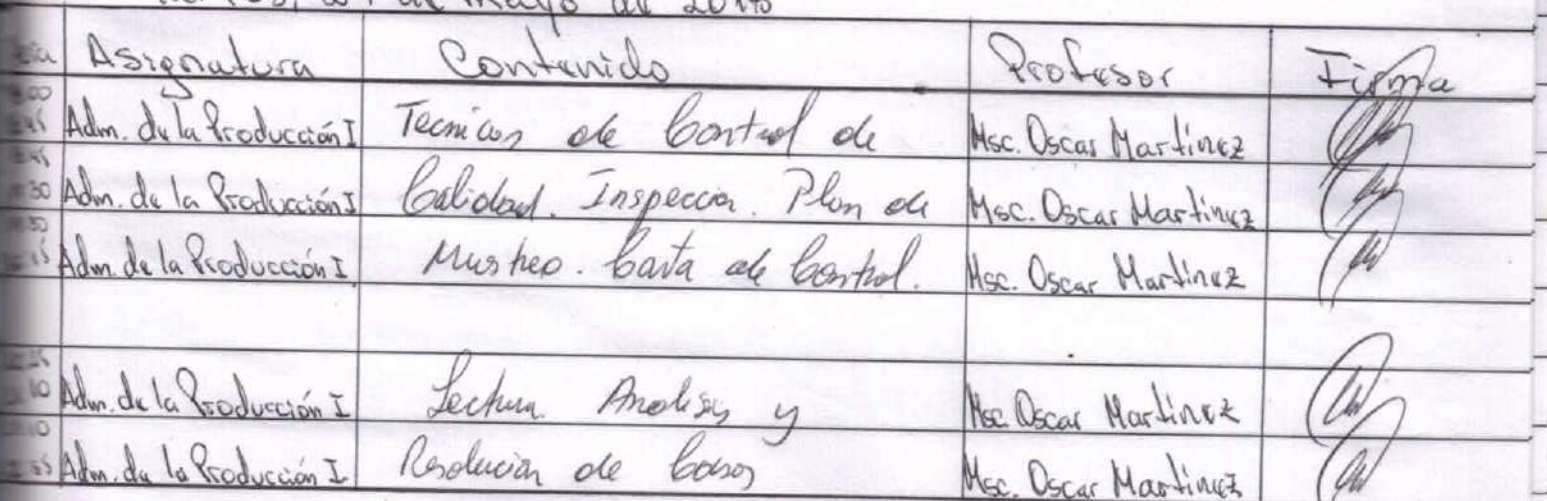 de Mayo de
Asignatura Contenido Profesor Firma
Adm. de la Producción I Tecnicas de Control de Msc. Oscar Martinez
Adm. de la Producción I Calidad. Inspeccion. Plan de Msc. Oscar Martinez
Adm. de la Producción I Mustreo. Carta de Control. Msc. Oscar Martinez
Adm. de la Producción I Lectura Analisis y Msc. Oscar Martinez
Adm. de la Producción I Resolucion de Casos Msc. Oscar Martinez